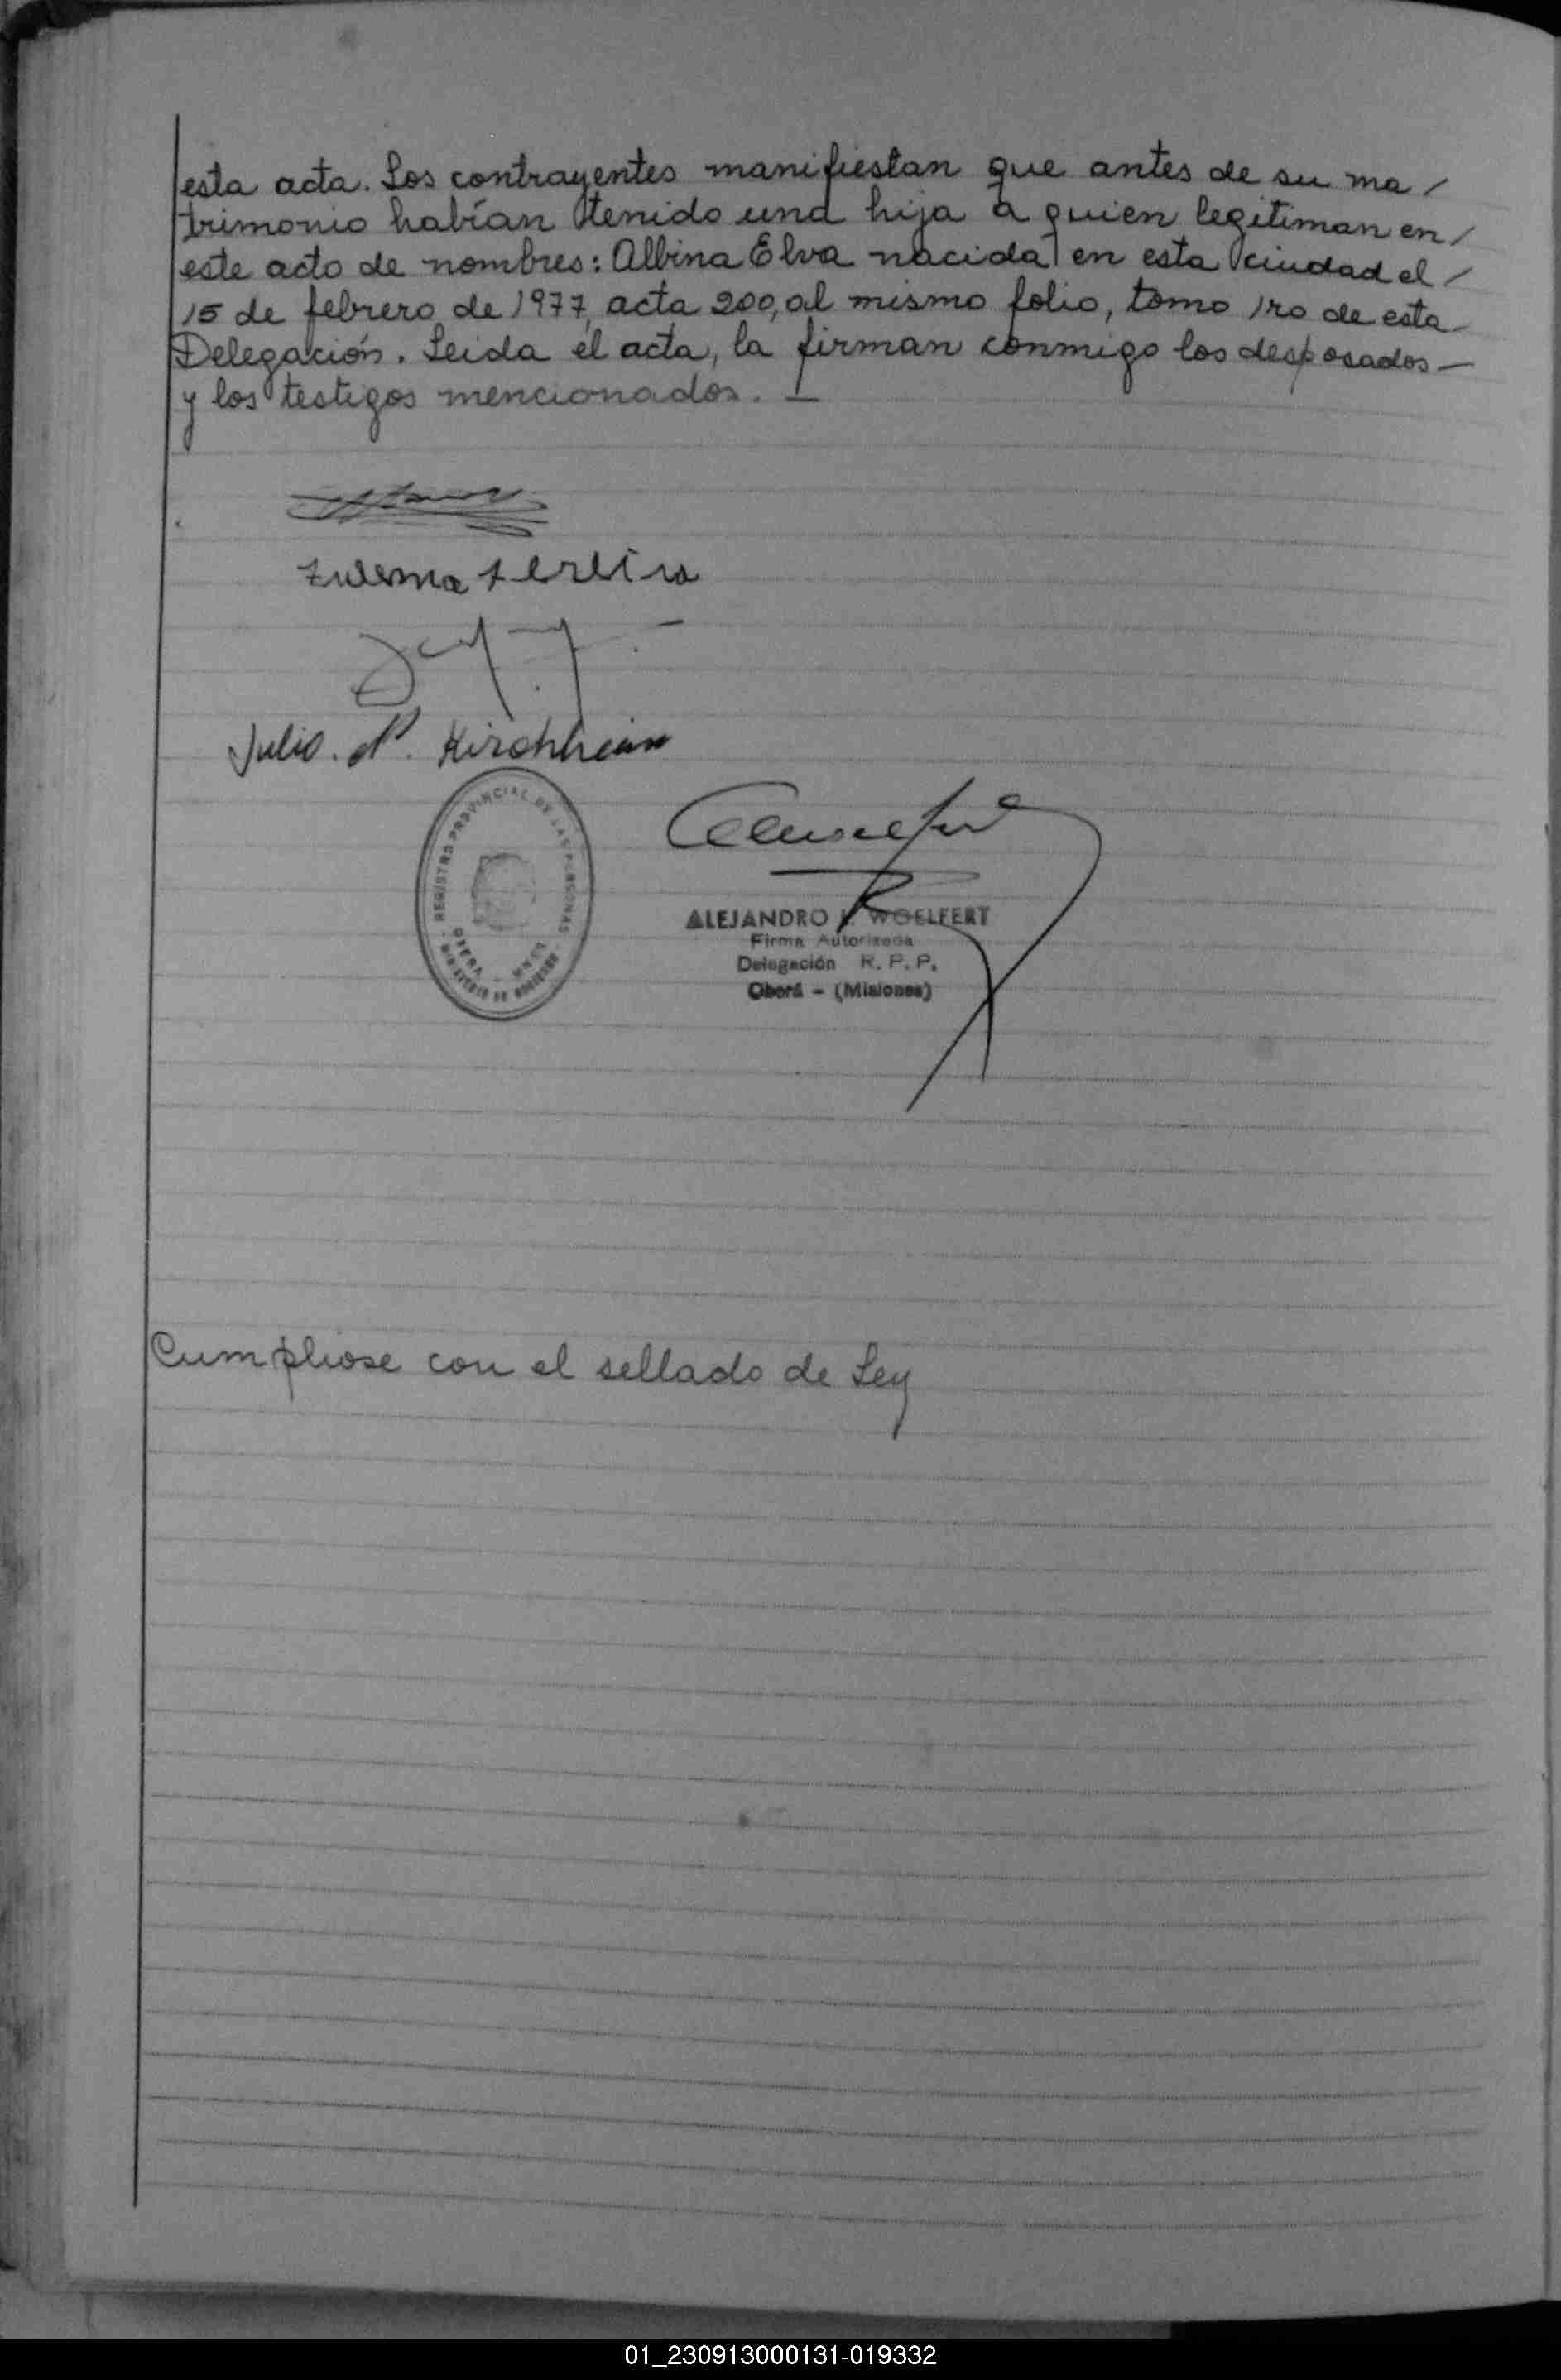 esta acta. Los contrayentes manifiestan que antes de su ma /
trimonio habían tenido una hija a quien legitiman en /
este acto de nombres: Albina Elva nacida en esta ciudad el /
15 de febrero de 1977, acta 200, al mismo folio, tomo 1ro de esta
Delegación. Leida el acta, la firman conmigo los desposados —
y los testigos mencionados. —
Zulema Pereira
Julio. Kirchheim
REGISTRO PROVINCIAL DE LAS PERSONAS
OBERA - MNES
MINISTERIO DE GOBIERNO
ALEJANDRO WOELFERT
Firma Autorizada
Delegación R. P. P.
Oberá - (Misiones)
Cumpliose con el sellado de Ley
01_230913000131-019332